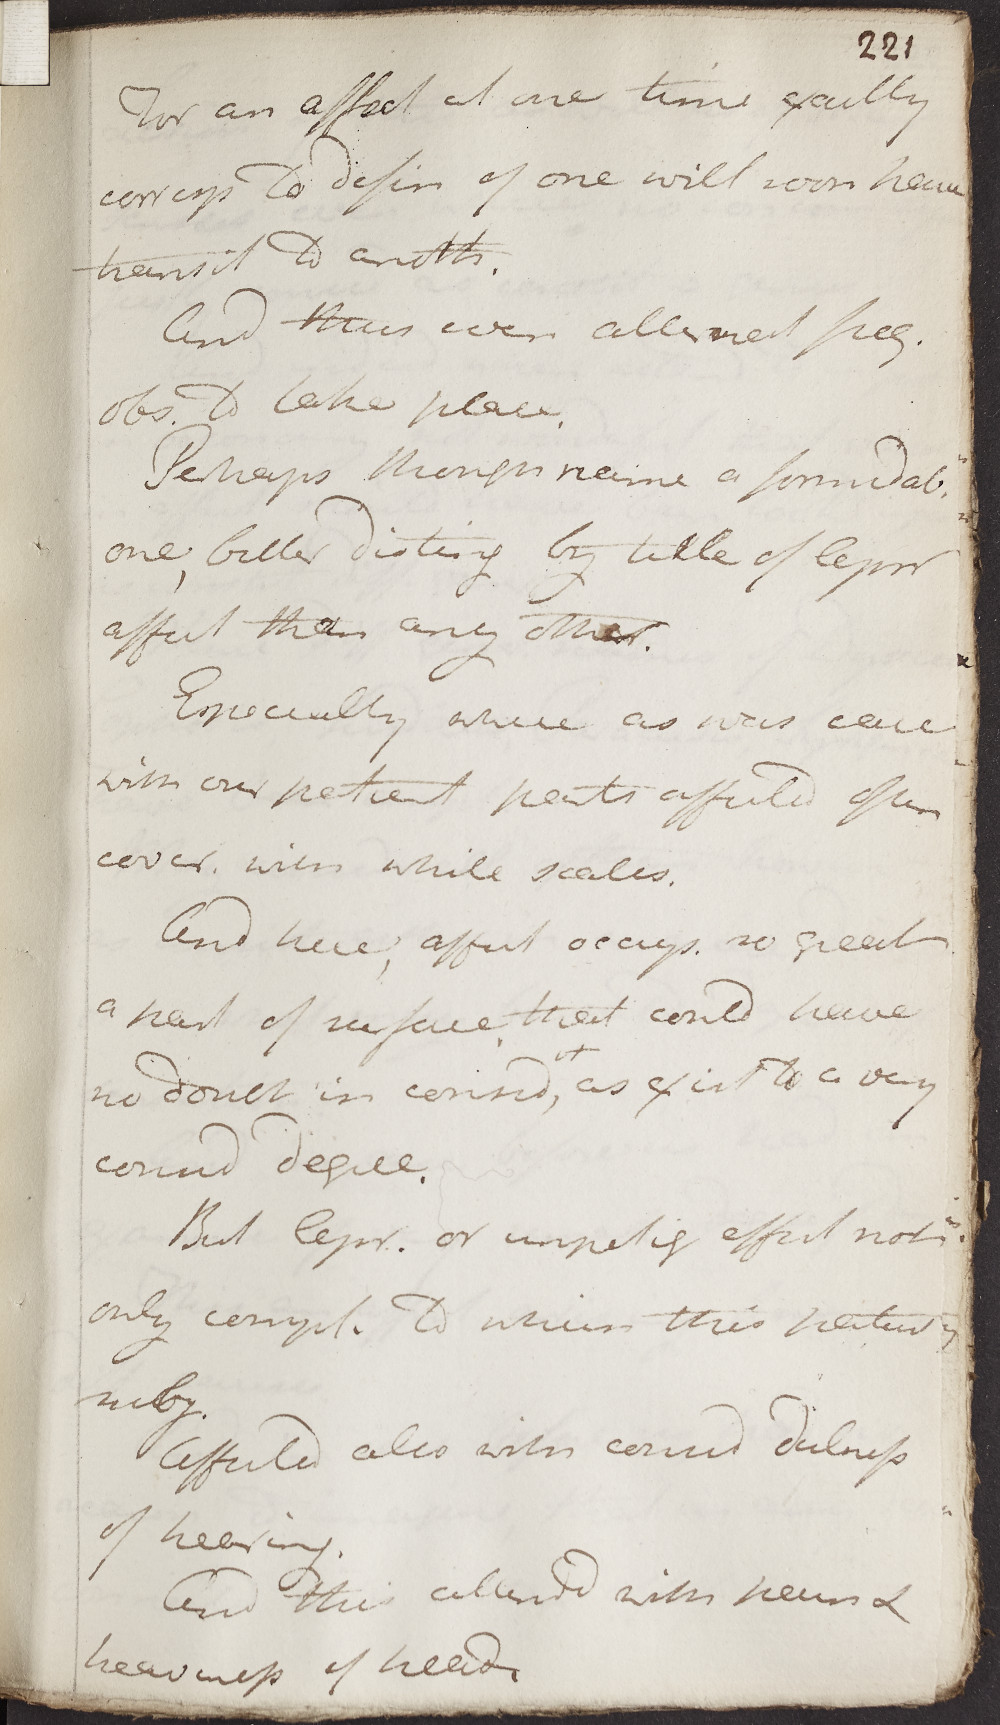 221
For an affect at one time exactly
corresp to defin of one will soon have
transit to anoth.
And thus even alternat freq.
obs. to take place.
Perhaps though name a formidab.
one, better disting by title of lepr
affect than any other.
Especially where as was case
with our patient parts affected often
cover. with white scales.
And here, affect occup. so great
a part of surface, that could have
no doubt in consid, it as exist to a very
consid degree.
But lepr. or impetig affect not
only compl. to which this patient
subj.
Affected also with consid dulness
of hearing.
And this attend with pain &
heaviness of head.